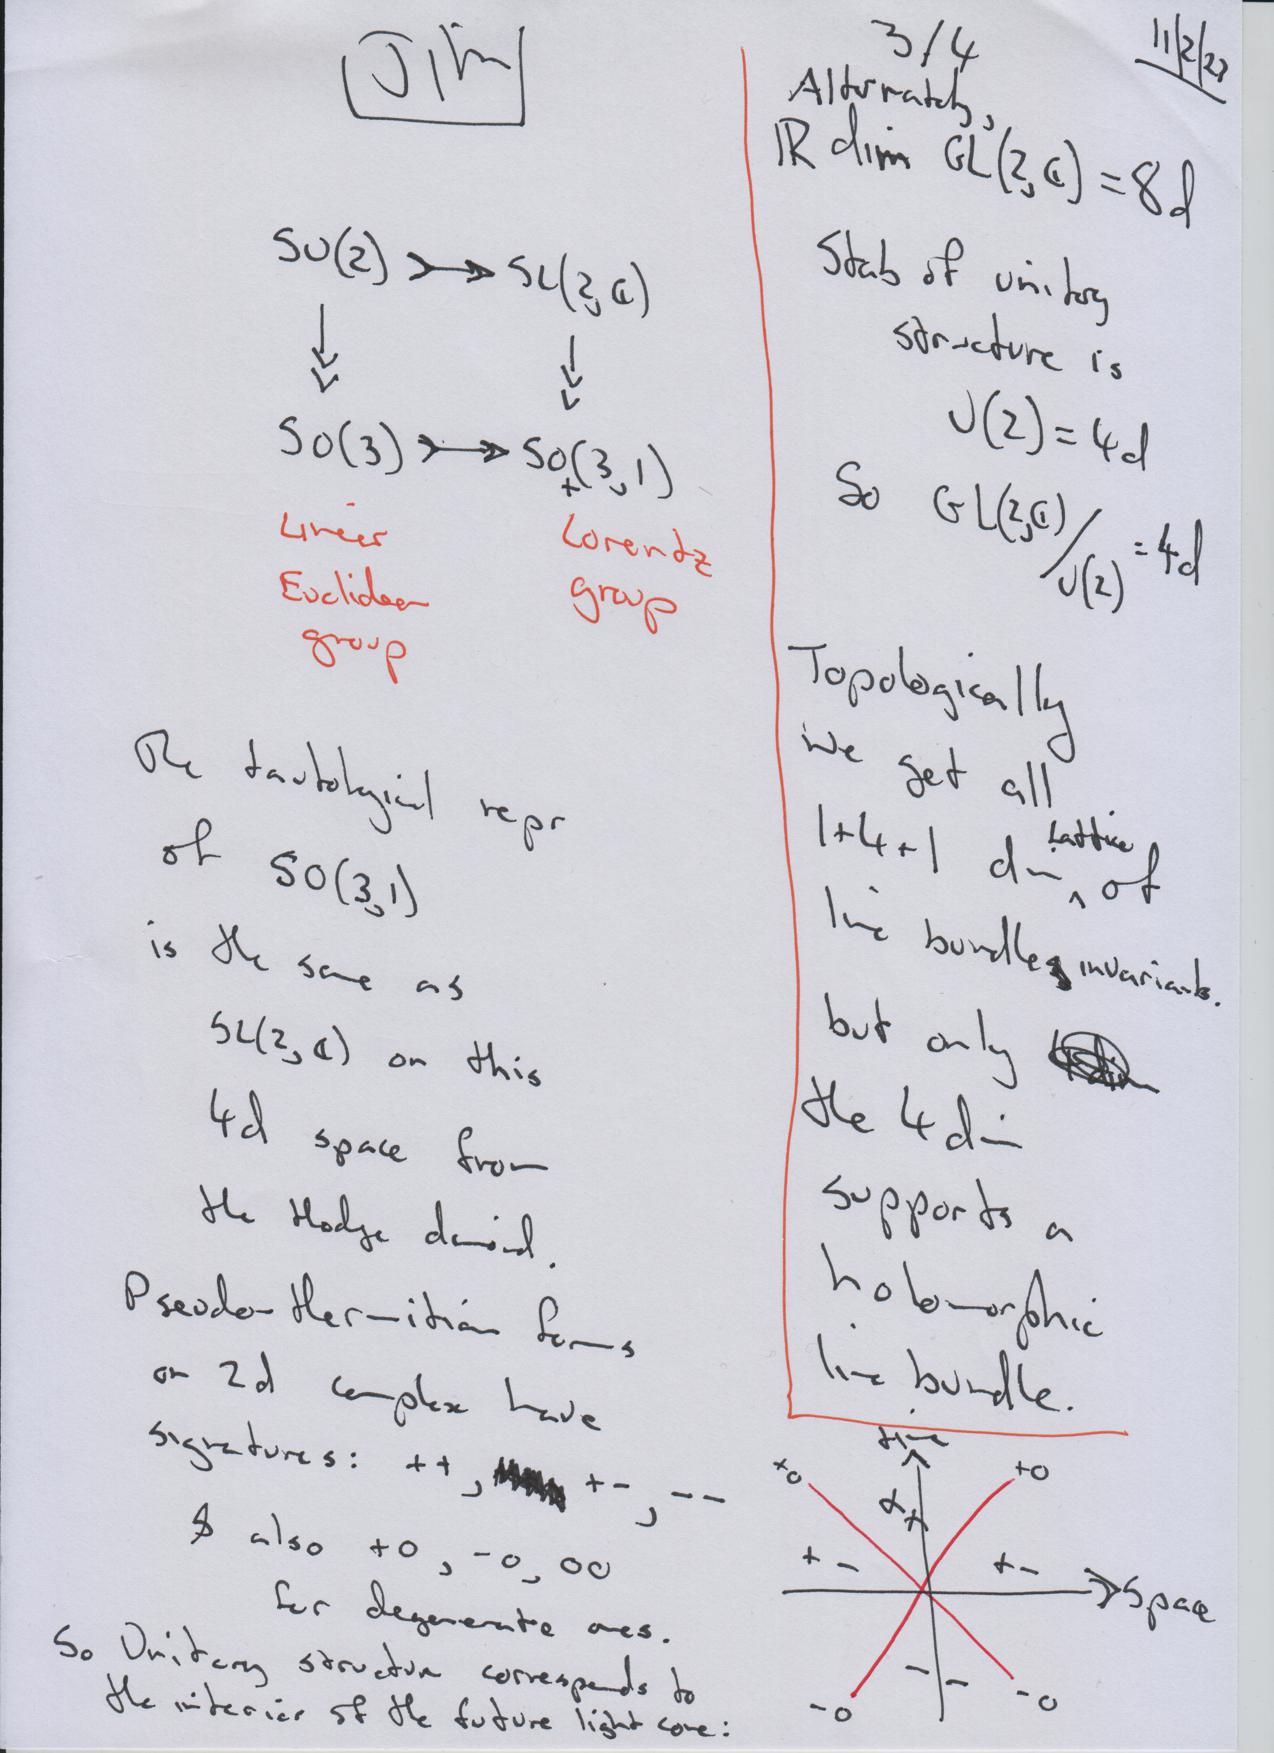 Jim
SU(2) ↣ SL(2,ℂ)
SO(3) ↣ SO₊(3,1)
Linear
Euclidean
group
Lorentz
group
The tautological repr
of SO(3,1)
is the same as
SL(2,ℂ) on this
4d space from
the Hodge diamond.
Pseudo-Hermitian forms
on 2d complex have
signatures: ++, +-, --
& also +0, -0, 00
for degenerate ones.
So Unitary structure corresponds to
the interior of the future light cone:
3/4
11/2/23
Alternately,
ℝ dim GL(2,ℂ) = 8d
Stab of unitary
structure is
U(2) = 4d
So GL(2,ℂ)/U(2) = 4d
Topologically
we get all
1+4+1 dim lattice of
line bundle invariants.
but only
the 4 dim
supports a
holomorphic
line bundle.
time
+0 +0
++
+- +-
space
--
-0 -0